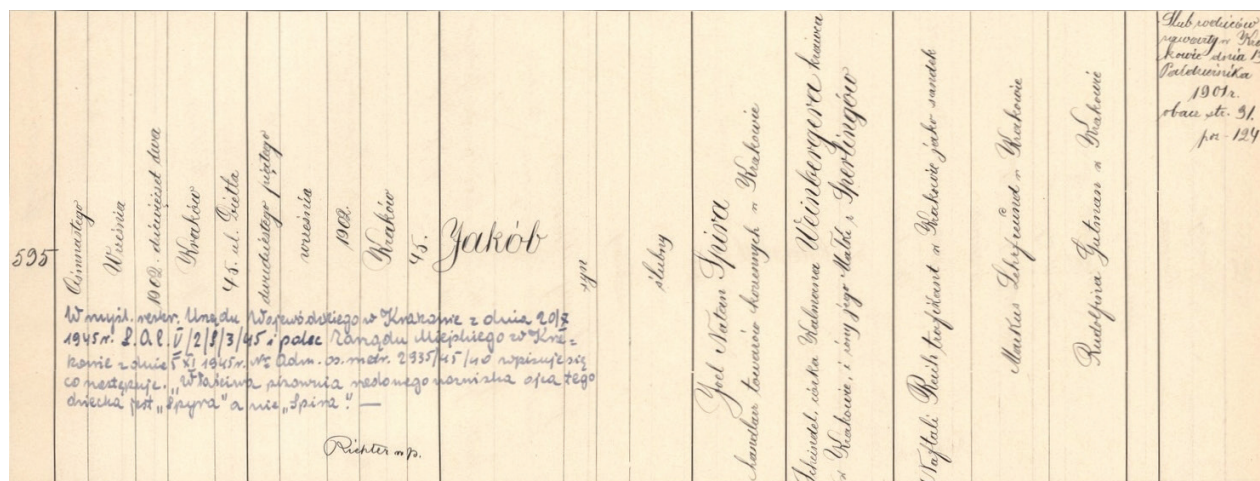 595
Ósmnastego
Września
1902. dziewięćset dwa
Kraków
45. ul. Dietla
dwudziestego piątego
września
1902.
Kraków
45.
Jakób
syn
ślubny
Joel Natan Spira
handlarz towarów korzennych w Krakowie
Scheindel, córka Kalmana Weinbergera krawca
w Krakowie, i żony jego Małki z Sperlingów
Naftali Reich trafikant w Krakowie jako sandek
Markus Lehrfreund w Krakowie
Rudolfina Gutman w Krakowie
Ślub rodziców
zawarty w Kra
kowie dnia 1
Października
1901r.
obacz str. 31.
poz - 124
W myśl. reskr. Urzędu Wojewódzkiego w Krakowie z dnia 20/X
1945r. L.A.C. V/2/8/3/45 i polec Zarządu Miejskiego w Kra-
kowie z dnia 5 XI 1945r. Nr Adm. os. metr. 2935/45/40 wpisuje się
co następuje. „Właściwa pisownia rodowego nazwiska ojca tego
dziecka jest „Spyra” a nie „Spira”. —
Richter mp.